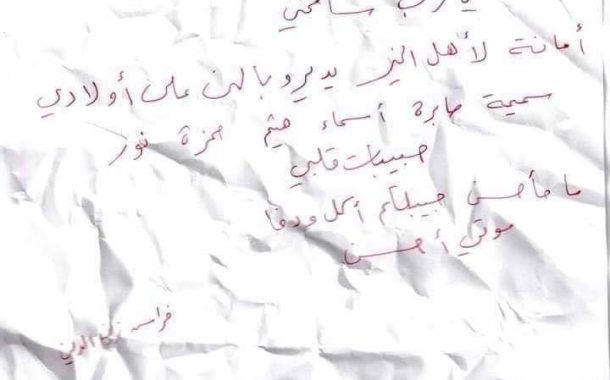 يارب سامحني
أمانة لأهل الخير يديرو بالهن على أولادي
سمية صابرة أسماء هيثم حمزة نور
حبيبات قلبي
ما حأحسن جيبلكم أكل ودفا
موتي أحسن
فراس زين الدين